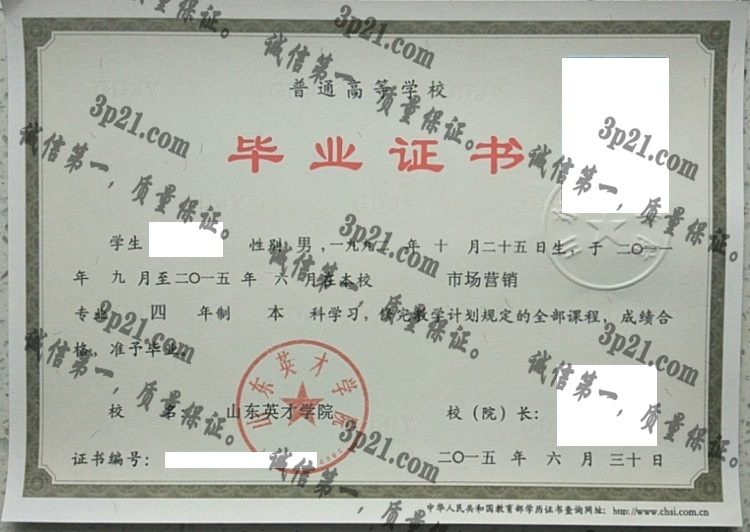 普通高等学校
毕业证书
学生 性别 男，一九九二 年 十 月二十五日生，于 二〇一一
年 九 月至二〇一五 年 六 月在本校 市场营销
专业 四 年制 本 科学习，修完教学计划规定的全部课程，成绩合
格，准予毕业。
校 名： 山东英才学院 校（院）长：
证书编号： 二〇一五 年 六 月 三十 日
中华人民共和国教育部学历证书查询网址：http://www.chsi.com.cn
山东英才学院
3p21.com
诚信第一，质量保证。
3p21.com
诚信第一，质量保证。
3p21.com
诚信第一，质量保证。
3p21.com
诚信第一，质量保证。
3p21.com
诚信第一，质量保证。
3p21.com
诚信第一，质量保证。
3p21.com
诚信第一，质量保证。
质量保证。